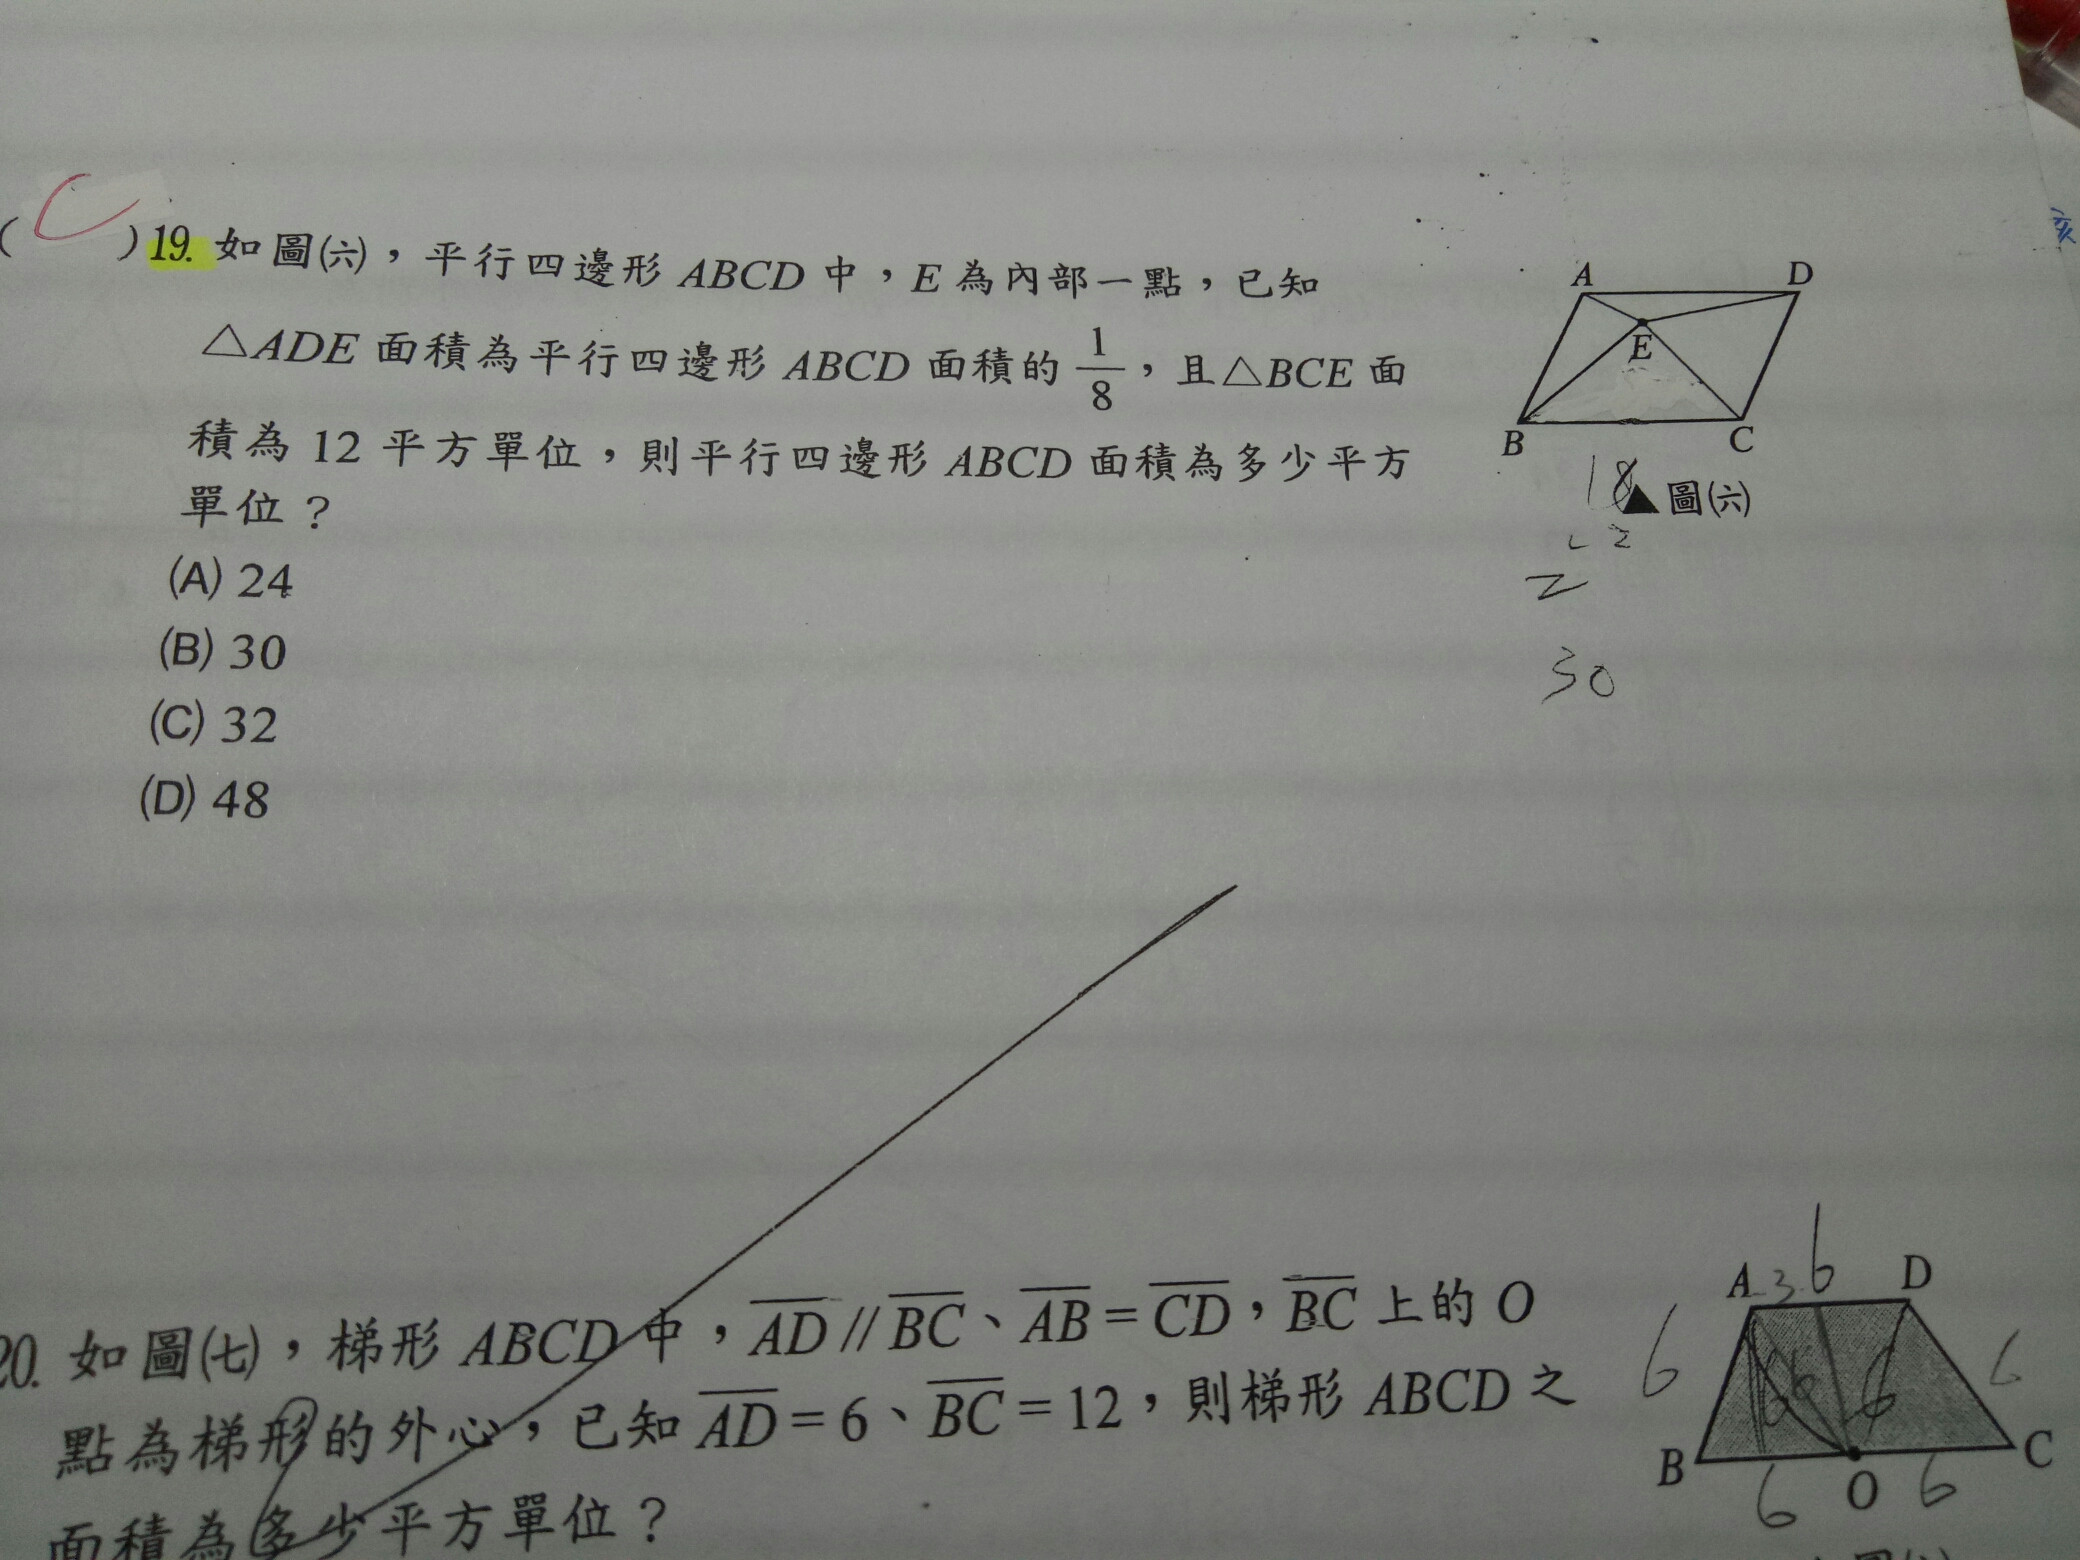 ( C )19. 如圖(六)，平行四邊形 ABCD 中，E 為內部一點，已知
△ADE 面積為平行四邊形 ABCD 面積的 1/8，且△BCE 面
積為 12 平方單位，則平行四邊形 ABCD 面積為多少平方
單位？
(A) 24
(B) 30
(C) 32
(D) 48
A D
E
B C
18
▲圖(六)
2
30
20. 如圖(七)，梯形 ABCD 中，AD // BC、AB = CD，BC 上的 O
點為梯形的外心，已知 AD = 6、BC = 12，則梯形 ABCD 之
面積為多少平方單位？
6
A 3 D
6 6
6 6
B O C
6 6